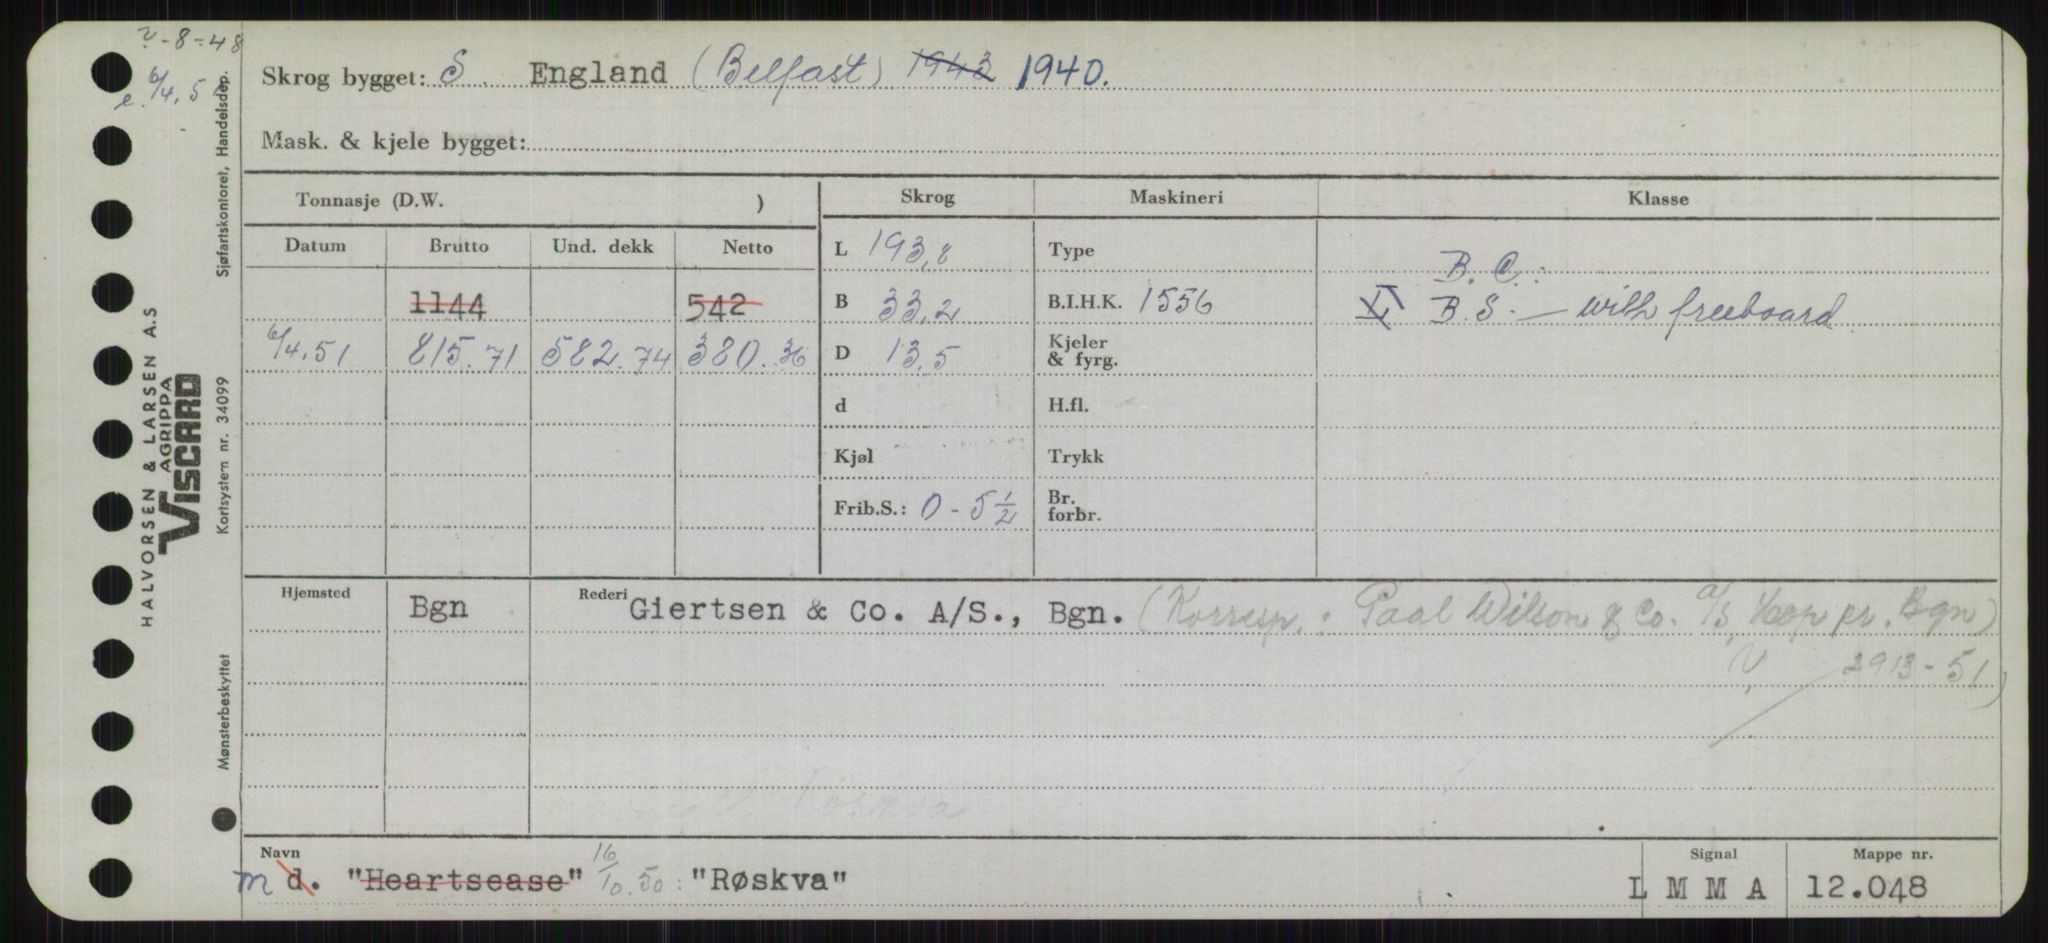 v-8-48
e. 6/4.5
Skrog bygget: S. England (Belfast) 1943 1940.
Mask. & kjele bygget:
Tonnasje (D.W. )
Skrog
Maskineri
Klasse
Datum Brutto Und. dekk Netto
L 193,8
Type
B. C.:
1144 542
B 33,2
B.I.H.K. 1556
II B.S. — with freeboard.
6/4.51 815.71 582.74 380.36
D 13,5
Kjeler & fyrg.
d
H.fl.
Kjøl
Trykk
Frib.S.: 0 - 5 1/2
Br. forbr.
Hjemsted Bgn
Rederi Giertsen & Co. A/S., Bgn. (Korresp.: Paal Wilson & Co. a/s, Hop pr. Bgn)
V. 2913-51)
Røskva
Navn
m d. "Heartsease" 16/10.50: "Røskva"
Signal
L M M A
Mappe nr.
12.048
HALVORSEN & LARSEN A.S
AGRIPPA
VISCARD
Mønsterbeskyttet
Kortsystem nr. 34099
Sjøfartskontoret, Handelsdep.